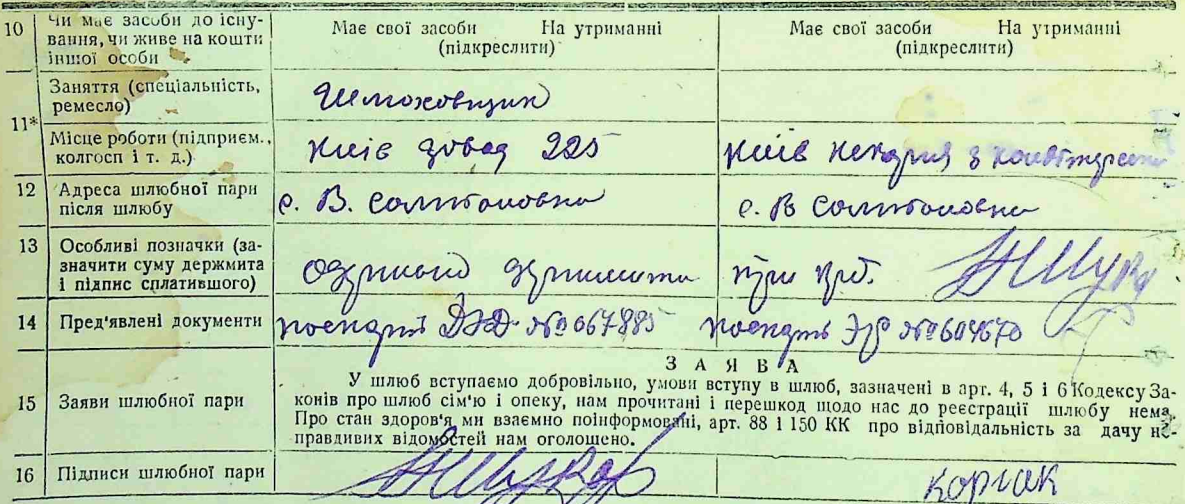 10 Чи має засоби до існування, чи живе на кошти іншої особи
Має свої засоби На утриманні
(підкреслити)
Має свої засоби На утриманні
(підкреслити)
11* Заняття (спеціальність, ремесло)
Місце роботи (підприєм., колгосп і т. д.)
Київ завод 225
Київ
12 Адреса шлюбної пари після шлюбу
с. В. Солтановка
с. В Солтановка
13 Особливі позначки (зазначити суму держмита і підпис сплатившого)
три крб.
14 Пред'явлені документи
№ 067885
№ 604670
15 Заяви шлюбної пари
ЗАЯВА
У шлюб вступаємо добровільно, умови вступу в шлюб, зазначені в арт. 4, 5 і 6 Кодексу За-
конів про шлюб сім'ю і опеку, нам прочитані і перешкод щодо нас до реєстрації шлюбу нема.
Про стан здоров'я ми взаємно поінформовані, арт. 88 і 150 КК про відповідальність за дачу не-
правдивих відомостей нам оголошено.
16 Підписи шлюбної пари
Корчак